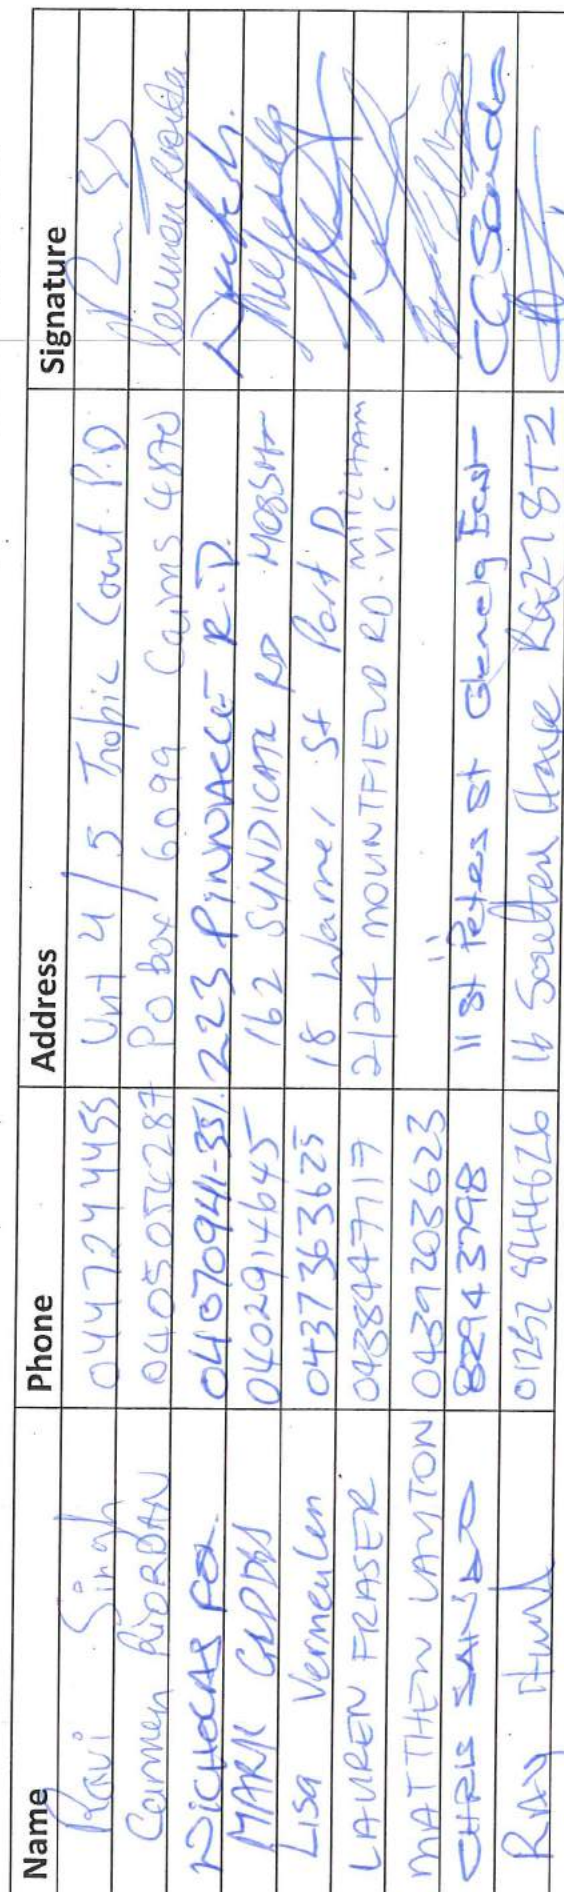 Name Phone Address Signature
Ravi Singh 0447244455 Unt 4/5 Tropic Court P.D
Carmen RIORDAN 0405056287 PO box 6099 Cairns 4870
NICHOLAS FOX. 04070941-351. 223 PINNACLE R.D.
MARK GEDDES 0402914645 162 SYNDICATE RD MOSSM
Lisa Vermeulen 0437363625 18 Warner St Port D
LAUREN FRASER 0438447117 2/24 MOUNTFIELD RD. MITCHAM VIC.
MATTHEW LAYTON 0439203623 "
CHRIS SANDO 82943798 11 St Peters St Glenelg East CCSando
RAY Hunt 01252 844626 16 Hook RG27 8T2